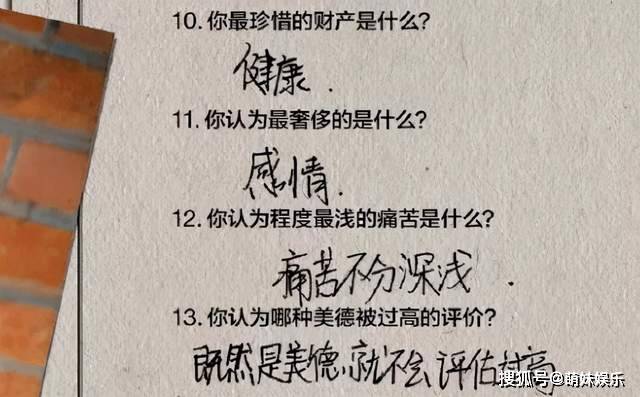 10. 你最珍惜的财产是什么?
健康.
11. 你认为最奢侈的是什么?
感情.
12. 你认为程度最浅的痛苦是什么?
痛苦不分深浅.
13. 你认为哪种美德被过高的评价?
既然是美德,就不会评估过高
搜狐号@萌妹娱乐